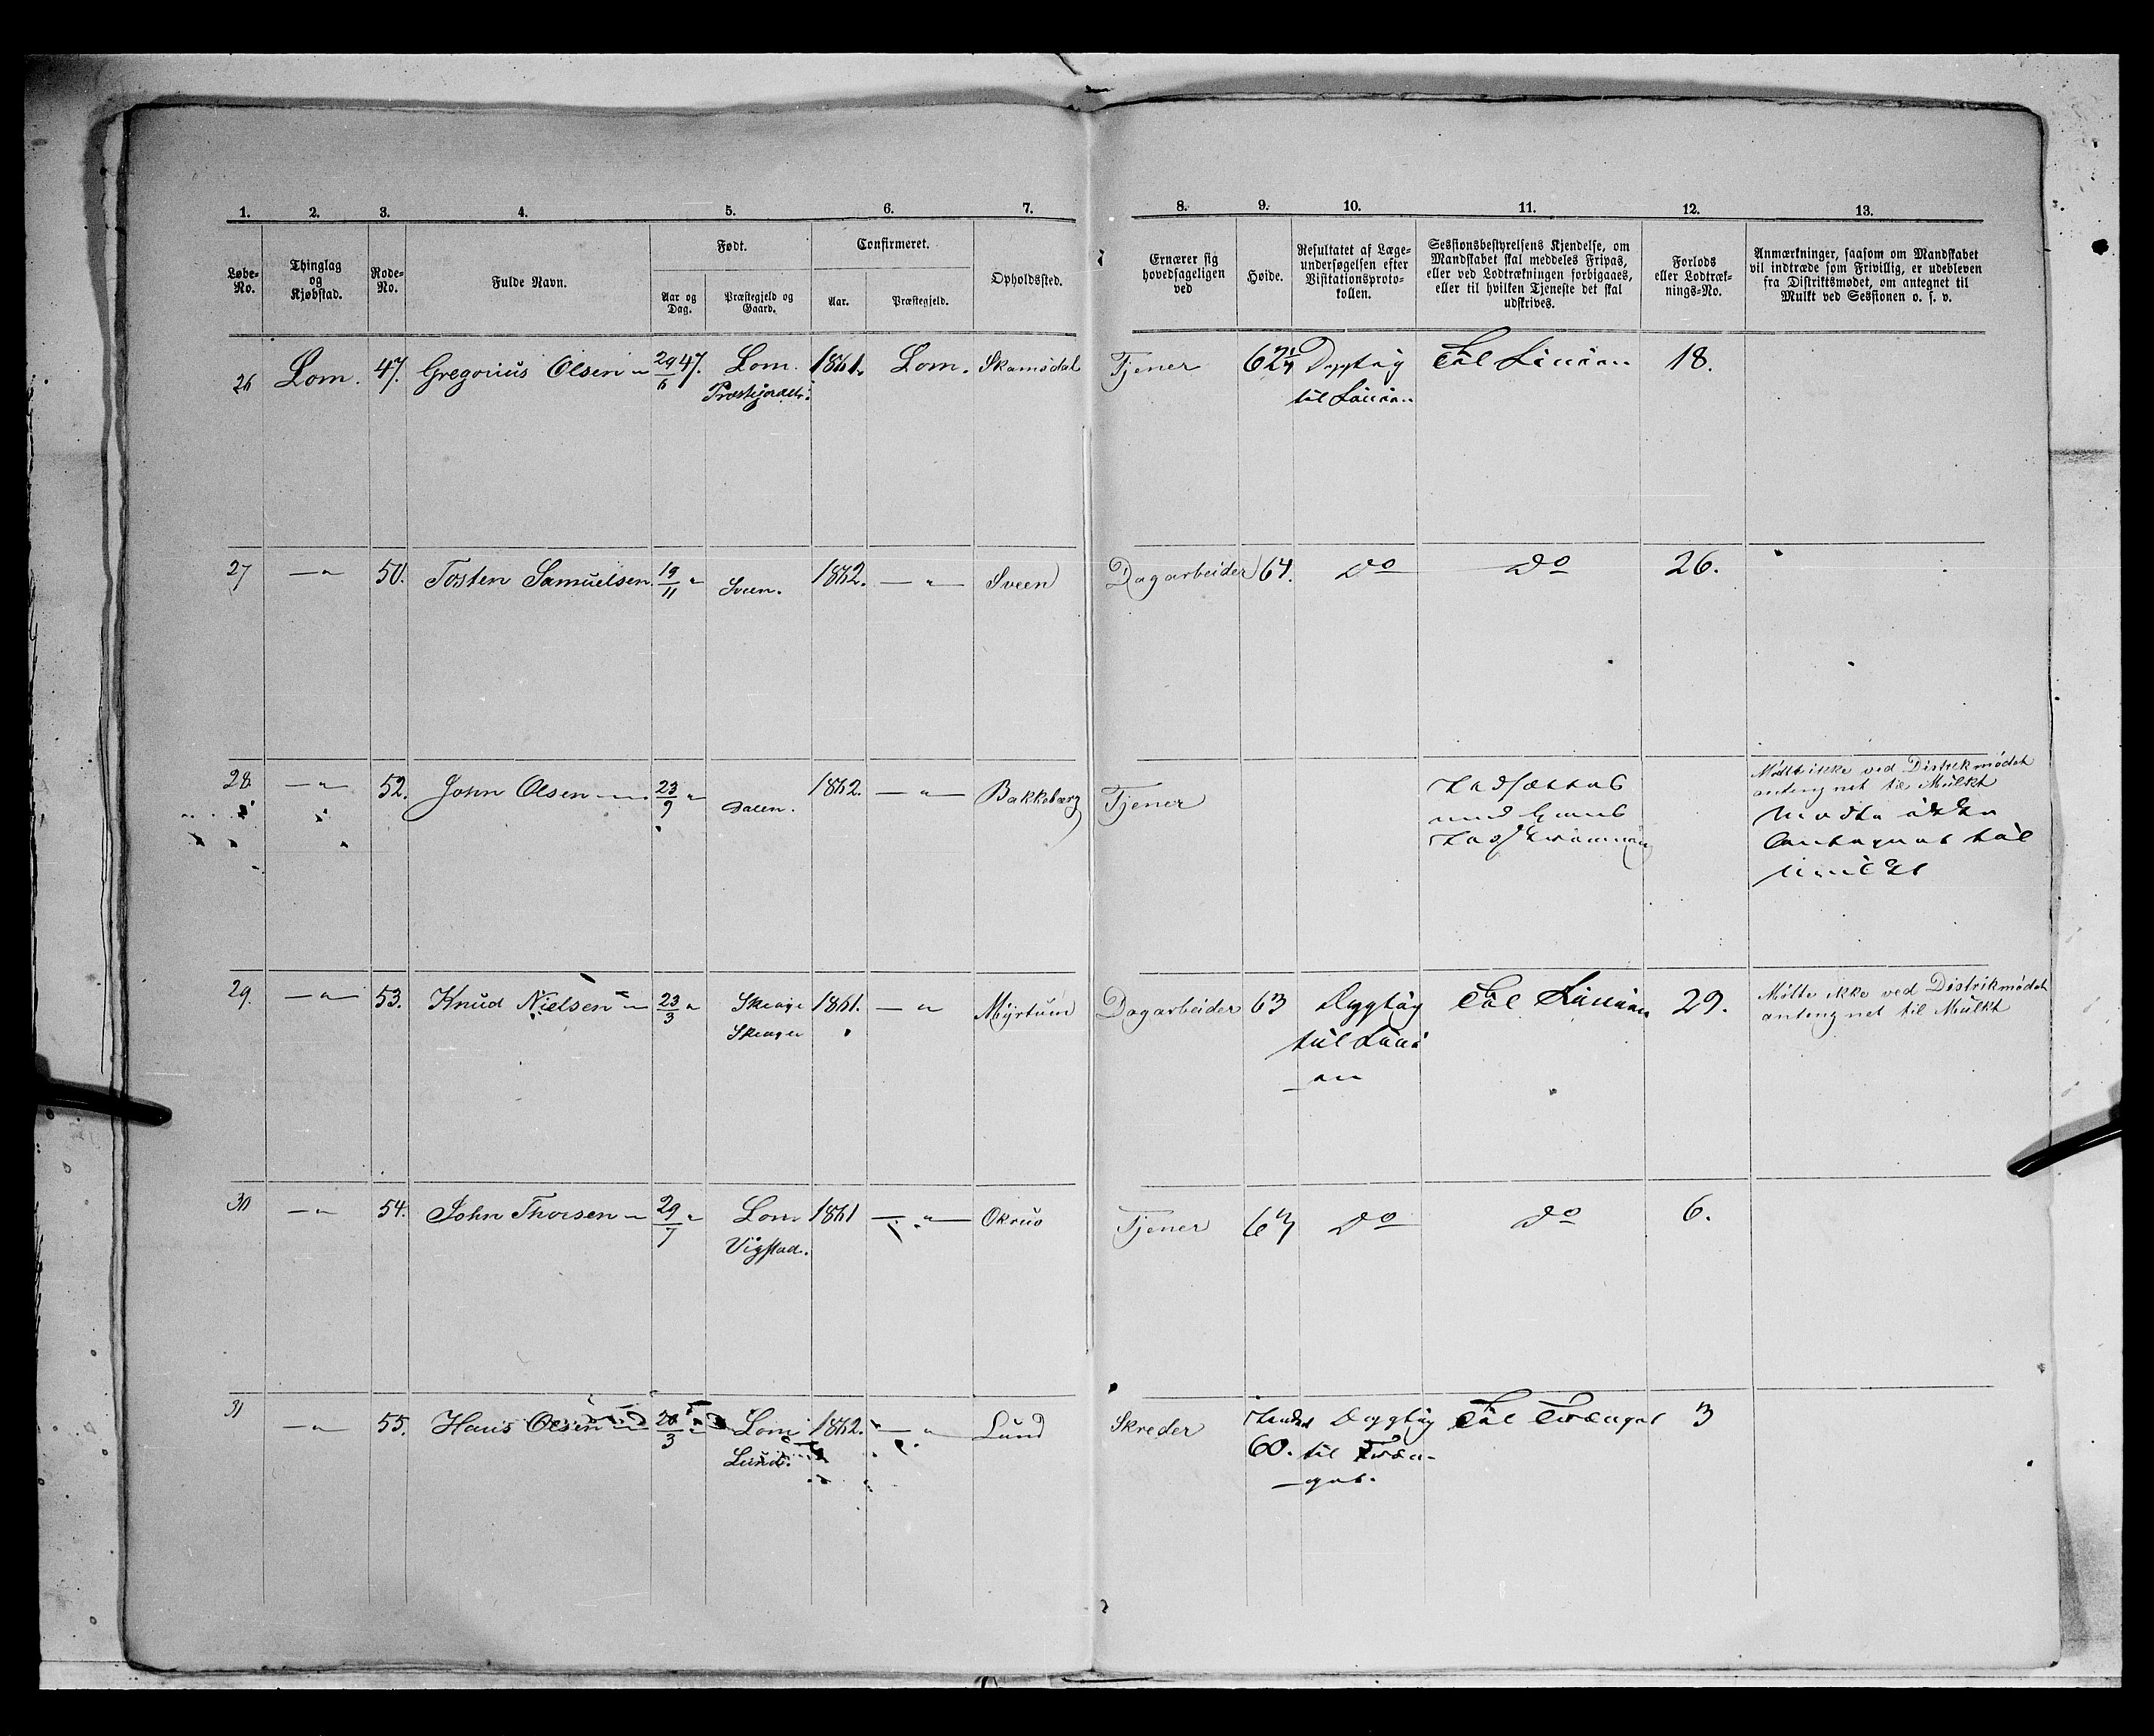 1. 2. 3. 4. 5. 6. 7. 8. 9. 10. 11. 12. 13.
Løbe-No.
Thinglag og Kjøbstad.
Rode-No.
Fulde Navn.
Født.
Aar og Dag.
Præstegjeld og Gaard.
Confirmeret.
Aar.
Præstegjeld.
Opholdssted.
Ernærer sig hovedsageligen ved
Høide.
Resultatet af Læge-undersøgelsen efter Visitationsproto-kollen.
Sessionsbestyrelsens Kjendelse, om Mandskabet skal meddeles Fripas, eller ved Lodtrækningen forbigaaes, eller til hvilken Tjeneste det skal udskrives.
Forlods eller Lodtræk-nings-No.
Anmærkninger, saasom om Mandskabet vil indtræde som Frivillig, er udebleven fra Distriktsmødet, om antegnet til Mulkt ved Sessionen o. s. v.
26 Lom. 47. Gregorius Olsen 29/6 47. Lom. 1861. Lom. Skamsdal Tjener 62 Dygtig Til Linien 18.
til Linien
27 —"— 50. Tosten Samuelsen. 19/11 " Sveen. 1862. —"— Sveen Dagarbeider 64. Do Do 26.
28. —"— 52. John Olsen 23/9 " Dalen. 1862. —"— Bakkeberg Tjener
Mødte ikke ved Distrikmødet
antengnet til Mulkt
Mødte ikke
Antegnet til
Mulkt
29. —"— 53. Knud Nielsen 23/3 " Skeager 1861. —"— Myrtuen Dagarbeider 63 Dygtig Til Linien 29. Mølte ikke ved Distrikmødet
Skeager til Lini antengnet til Mulkt
—en
30 —"— 54. John Thorsen 29/7 " Lom 1861 —"— Tjener 63 Do Do 6.
Vigstad.
31 —"— 55. Hans Olsen 20/3 " Lom 1862. —"— Lund Skreder Under Dygtig Til Trænget 3
Lund. 60. til Træn-
—get.